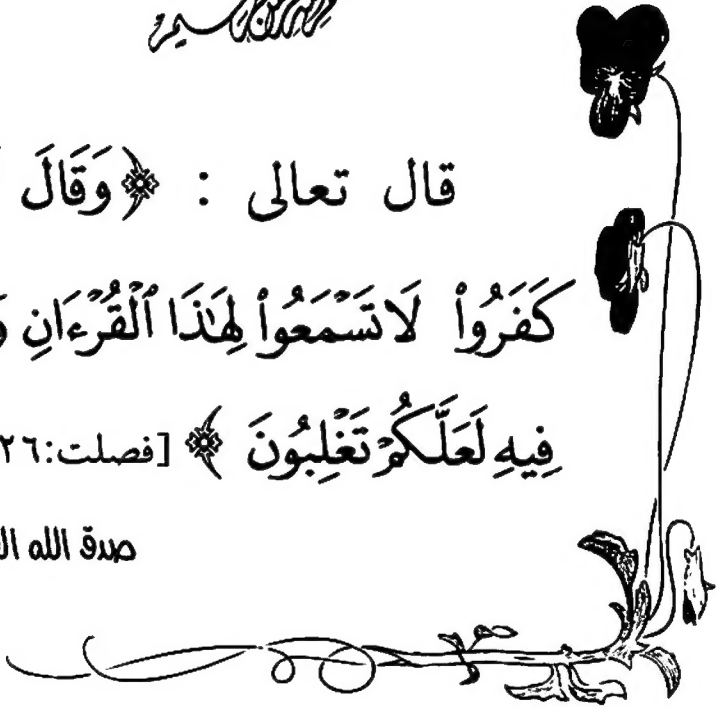 قال تعالى : ﴿وَقَالَ
كَفَرُواْ لَا تَسْمَعُواْ لِهَٰذَا ٱلْقُرْءَانِ
فِيهِ لَعَلَّكُمْ تَغْلِبُونَ ﴾ [فصلت:٢٦
صدق الله